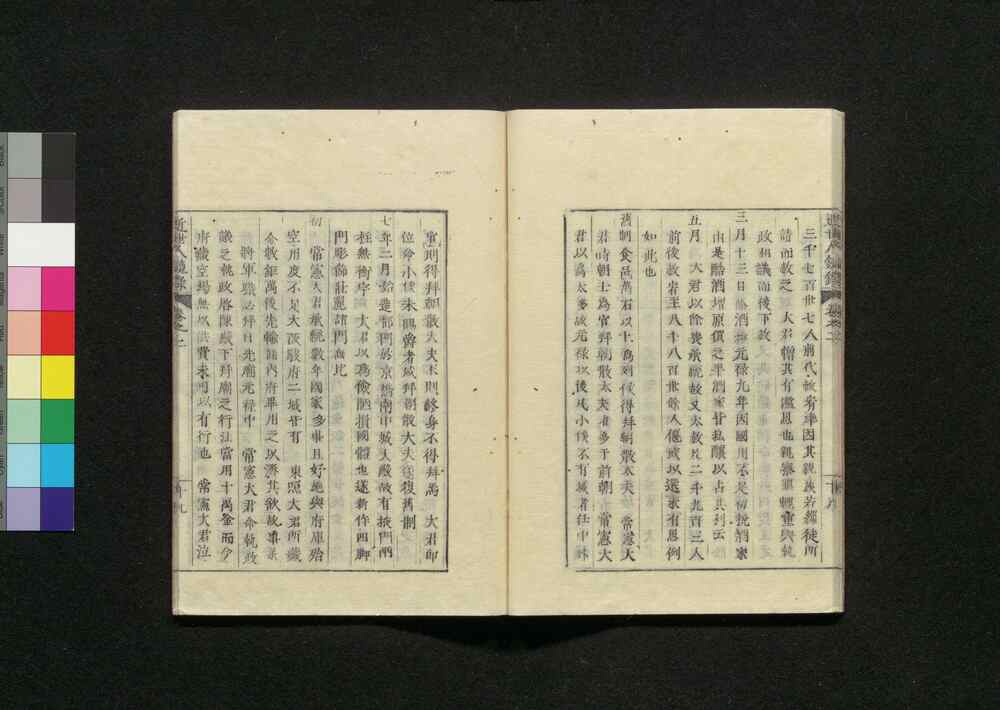 三千七百世七人前代故宥率因其親族若緇徒所
請而赦之大君憎其有濫恩也親察罪輕重與執
政相議而後下赦
三月十三日除酒榷元祿九年因國用不足初稅酒家
由是酤酒增原價之半酒家皆私釀以占其利云
五月大君以除喪承統故又大赦凡二千九百三人
前後赦宥王八千八百世餘人僊或以還家有恩例
如此也
舊制食邑萬石以上為列侯得拜朝散大夫除常憲大
君時朝士為官拜朝散大夫者多于前朝常憲大
君以為太多故元祿以後凡小侯不有城者任中
則得拜朝散大夫未則終身不得拜焉大君即
位命小侯未賜爵者咸拜朝散大夫復舊制
七年二月始造都門於京橋南中城大殿故有掖門兩
柱無衡宇大君以為儉陋損國體也遂新作四脚
門彫飾壯麗諸門面北
初常憲大君承統數年國家多事且好施與府庫殆
空用度不足大阪駿府二城皆有東照大君所藏
金數鉅萬後先輸諸內府畢用之以濟其欲故事
將軍職必拜日光廟元祿中常憲大君命執政
議之執政啓陳藏下拜廟之行江當用十萬金而今
府藏空竭無以供費未可以有行也常憲大君泣
近世人鏡錄
近世人鏡錄